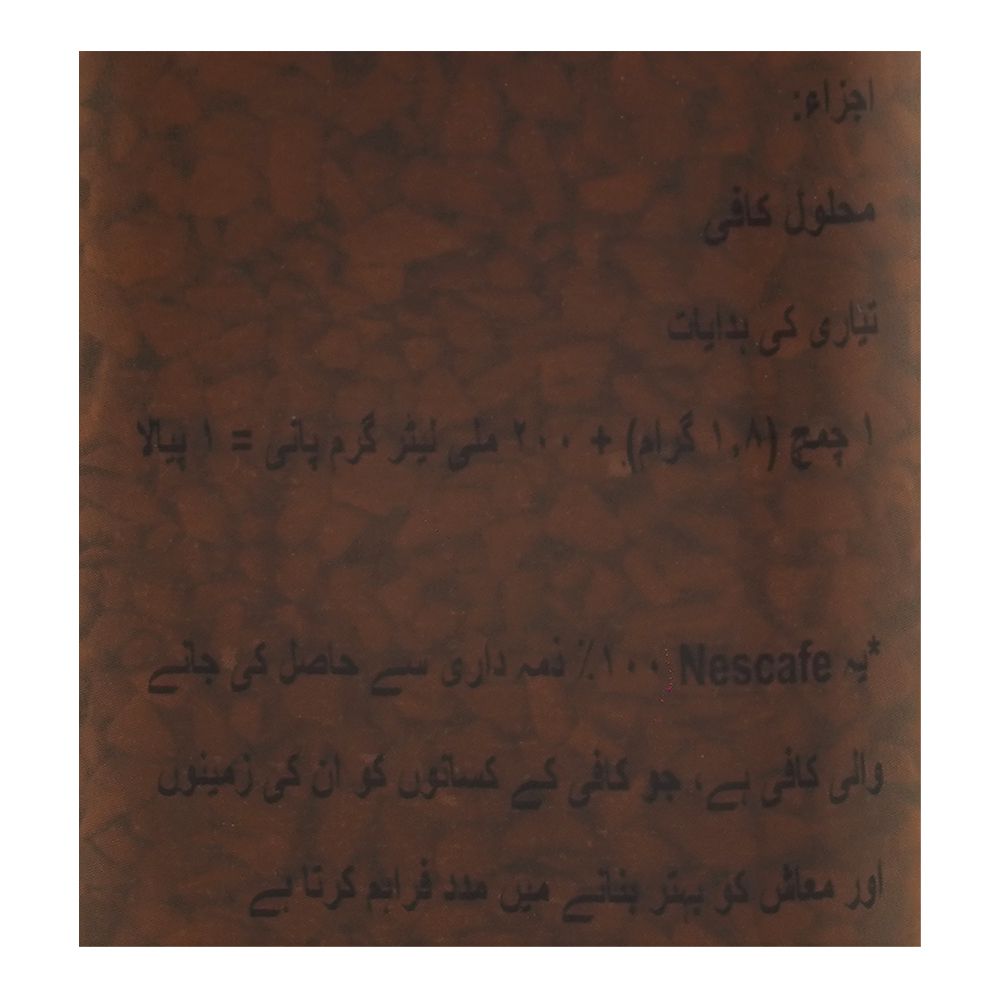 اجزاء:
محلول کافی
تیاری کی ہدایات
۱ چمچ (۱.۸ گرام) + ۲۰۰ ملی لیٹر گرم پانی = ۱ پیالا
*یہ Nescafe ۱۰۰٪ ذمہ داری سے حاصل کی جانے
والی کافی ہے، جو کافی کے کسانوں کو ان کی زمینوں
اور معاش کو بہتر بنانے میں مدد فراہم کرتا ہے